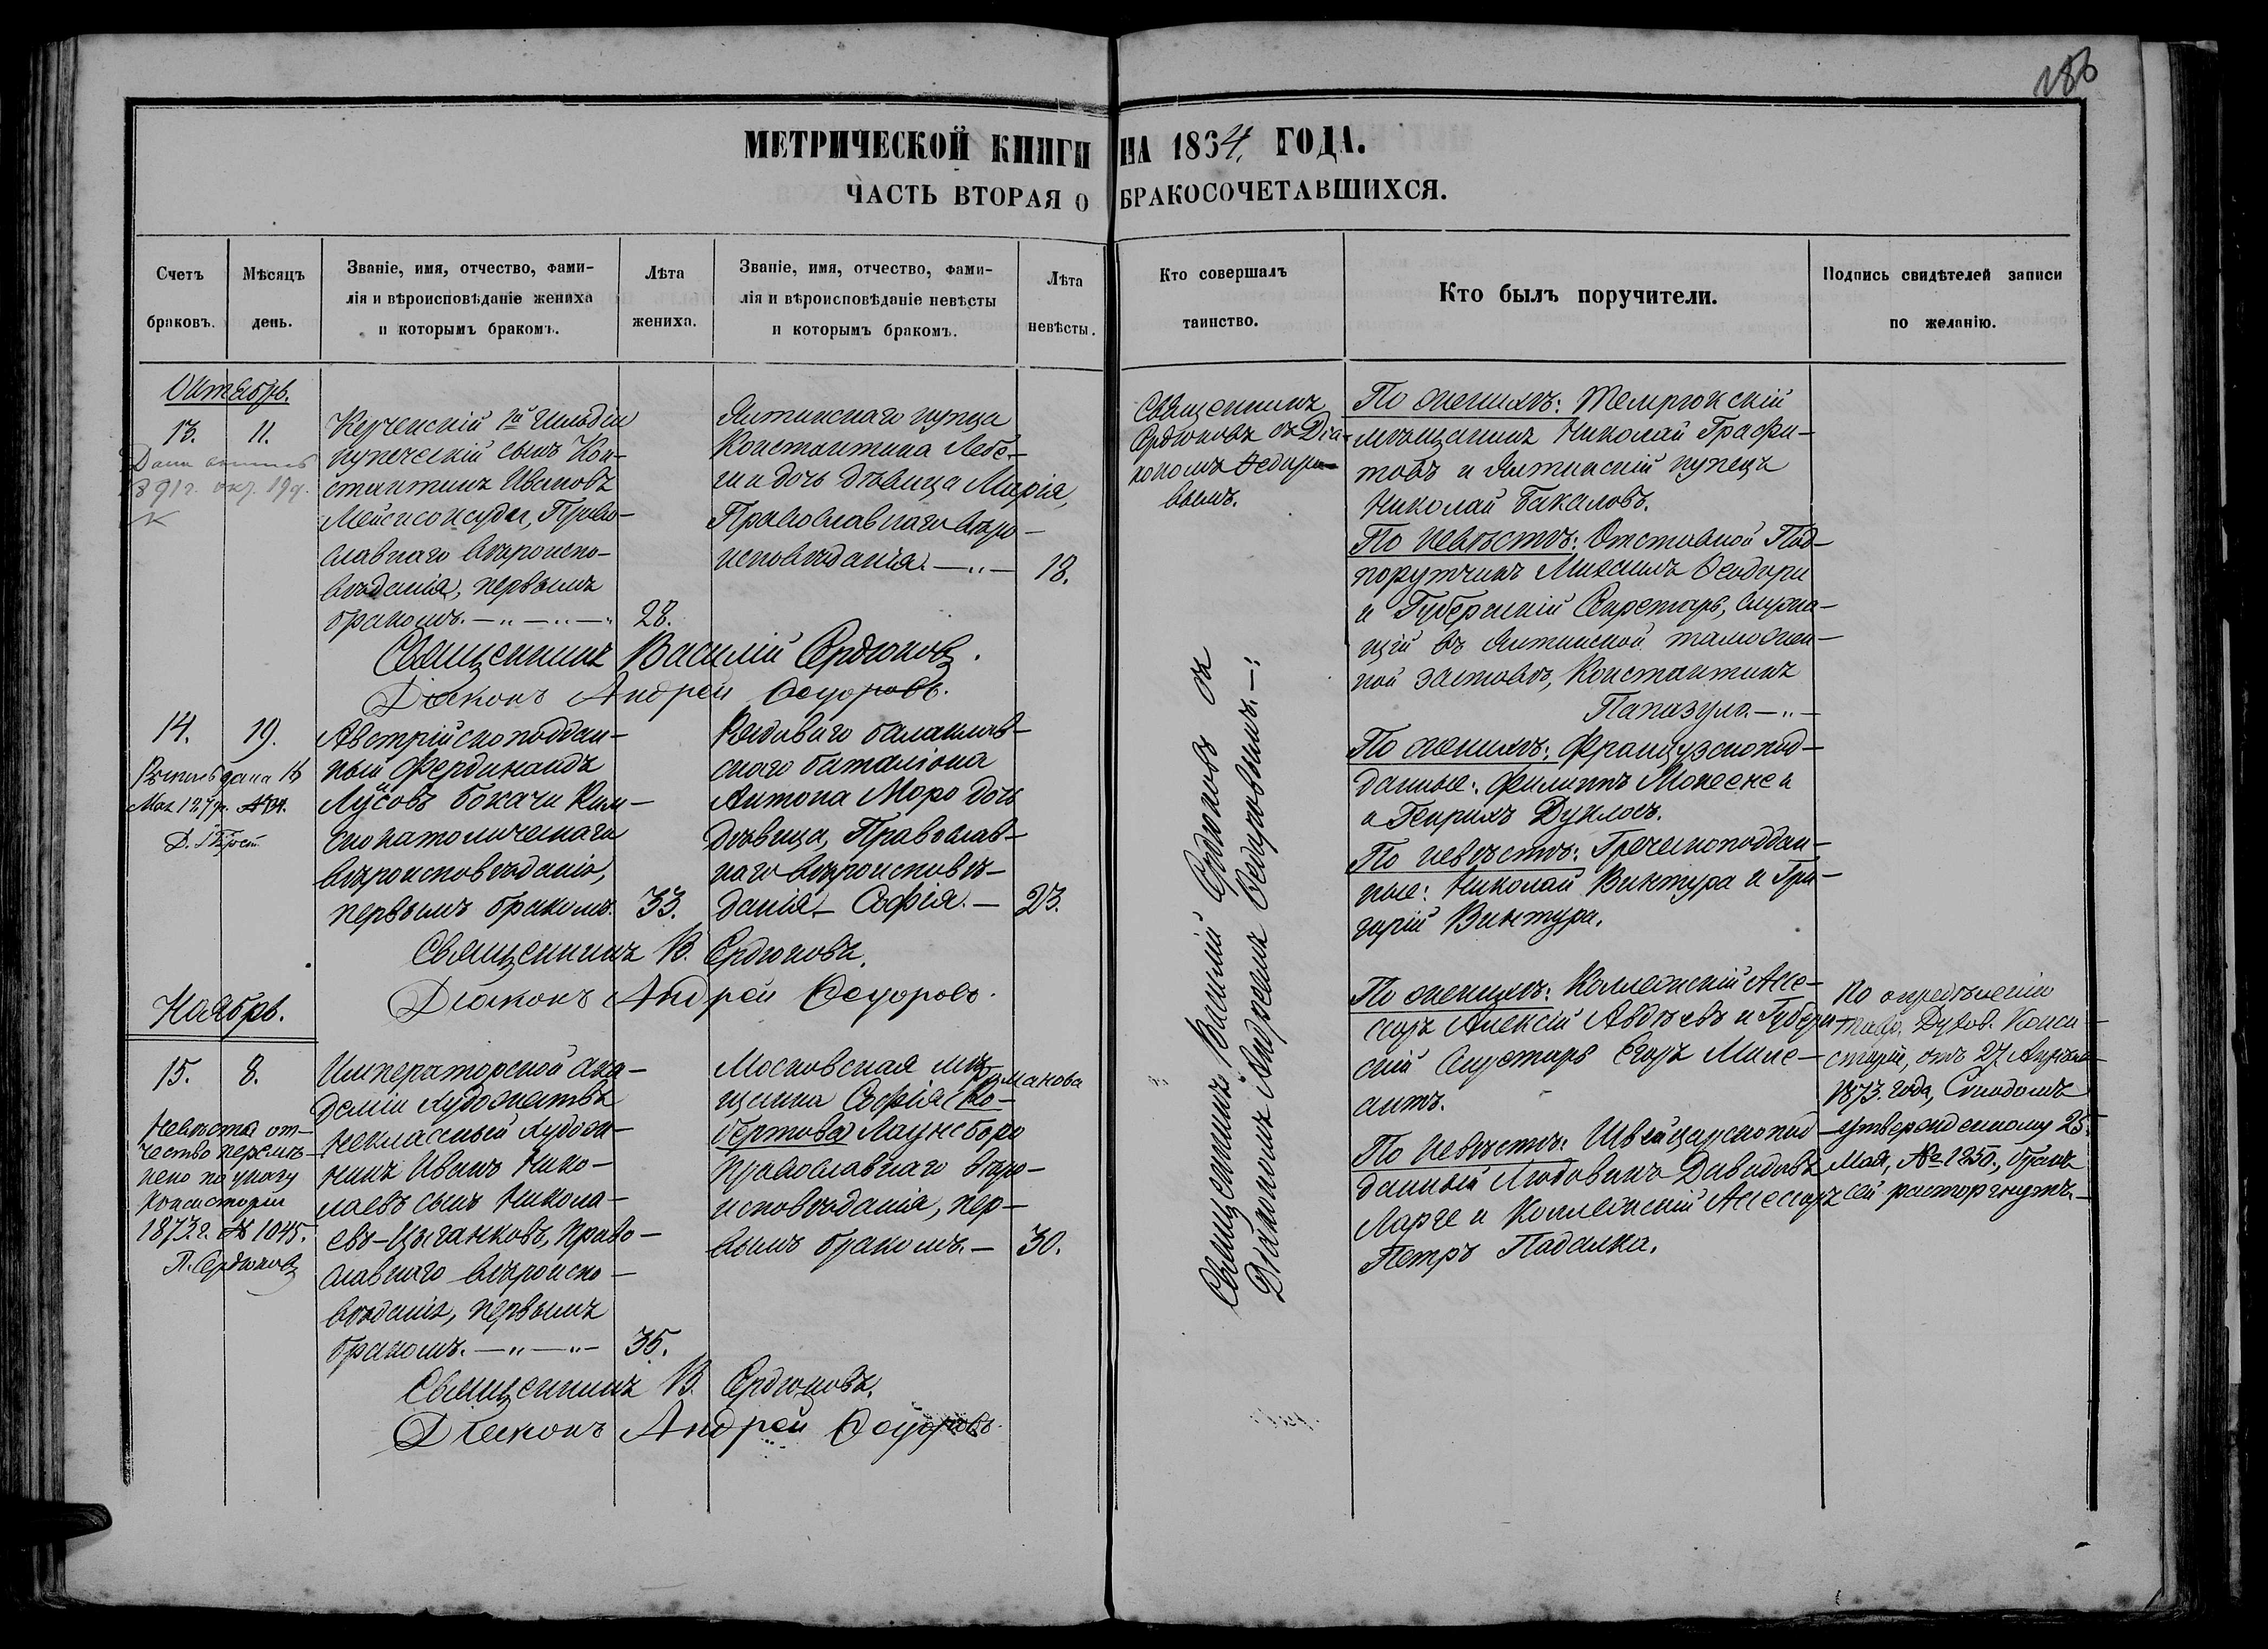 МЕТРИЧЕСКОЙ КНИГИ НА 1864. ГОДА.
ЧАСТЬ ВТОРАЯ О БРАКОСОЧЕТАВШИХСЯ.
Счетъ браковъ.
Мѣсяцъ день.
Званіе, имя, отчество, фами-
лія и вѣроисповѣданіе жениха
и которымъ бракомъ.
Лѣта
жениха.
Званіе, имя, отчество, фами-
лія и вѣроисповѣданіе невѣсты
и которымъ бракомъ.
Лѣта
невѣсты.
Кто совершалъ
таинство.
Кто былъ поручители.
Подпись свидѣтелей записи
по желанію.
Октябрь.
13. 11.
1891г. окт. 19д.
Керченскій 1й Гильдіи
купеческій сынъ Кон-
стантинъ Ивановъ
Право-
славнаго вѣроиспо-
вѣданія, первымъ
бракомъ. 28.
Ялтинскаго купца
Константина Лебе-
ги дочь дѣвица Марія,
Православнаго вѣро-
исповѣданія. 18.
Священникъ
Сердюковъ съ Діа-
кономъ Ѳедоро-
вымъ.
По женихѣ: Темрюкскій
мѣщанинъ Николай Графи-
товъ и Ялтинскій купецъ
Николай Бакаловъ.
По невѣстѣ: Отставной Под-
поручикъ Михаилъ Ѳеодори
и Губернскій Секретарь, служа-
щій въ Ялтинской таможен-
ной заставѣ, Константинъ
Папазуло.
Священникъ Василій Сердюковъ.
Діаконъ Андрей Ѳедоровъ.
14. 19.
Австрійскоподдан-
ный Фердинандъ
Бокачи Рим-
скокатолическаго
вѣроисповѣданія,
первымъ бракомъ. 33.
Рядового балаклав-
скаго баталіона
Антона Моро дочь
дѣвица, Православ-
наго вѣроисповѣ-
данія Софія. 23.
По женихѣ: Французскопод-
данные: Филиппъ
и Генрихъ Дуклосъ.
По невѣстѣ: Греческоподдан-
ные: Николай Виктура и Гри-
горій Виктура.
Священникъ В. Сердюковъ.
Діаконъ Андрей Ѳедоровъ.
Священникъ Василій Сердюковъ съ
Діакономъ Андреемъ Ѳедоровымъ.
Ноябрь.
15. 8.
Невѣста от-
чество перемѣ-
нено по указу
Консисторіи
1873г. № 1045.
П. Сердюковъ
Императорской Ака-
деміи Художествъ
неклассный худож-
никъ Иванъ Нико-
лаевъ сынъ Никола-
евъ-Цыганковъ, право-
славнаго вѣроиспо-
вѣданія, первымъ
бракомъ. 35.
Московская мѣ-
щанка Софія Ро-
бертова Лаунсборо
православнаго вѣро-
исповѣданія, пер-
вымъ бракомъ. 30.
По женихѣ: Коллежскій Ассе-
соръ Алексій Авдѣевъ и Губерн-
скій Секретарь Егоръ Миле-
антъ.
По невѣстѣ: Швейцарскопод-
данный Людовикъ Давидовъ
Ларге и Коллежскій Ассесоръ
Петръ Падалка.
По опредѣленію
Духов. Конси-
сторіи, отъ 27 Апрѣля
1873. года, Синодомъ
утвержденному 25
Мая, № 1250., бракъ
сей расторгнутъ.
Священникъ В. Сердюковъ.
Діаконъ Андрей Ѳедоровъ.